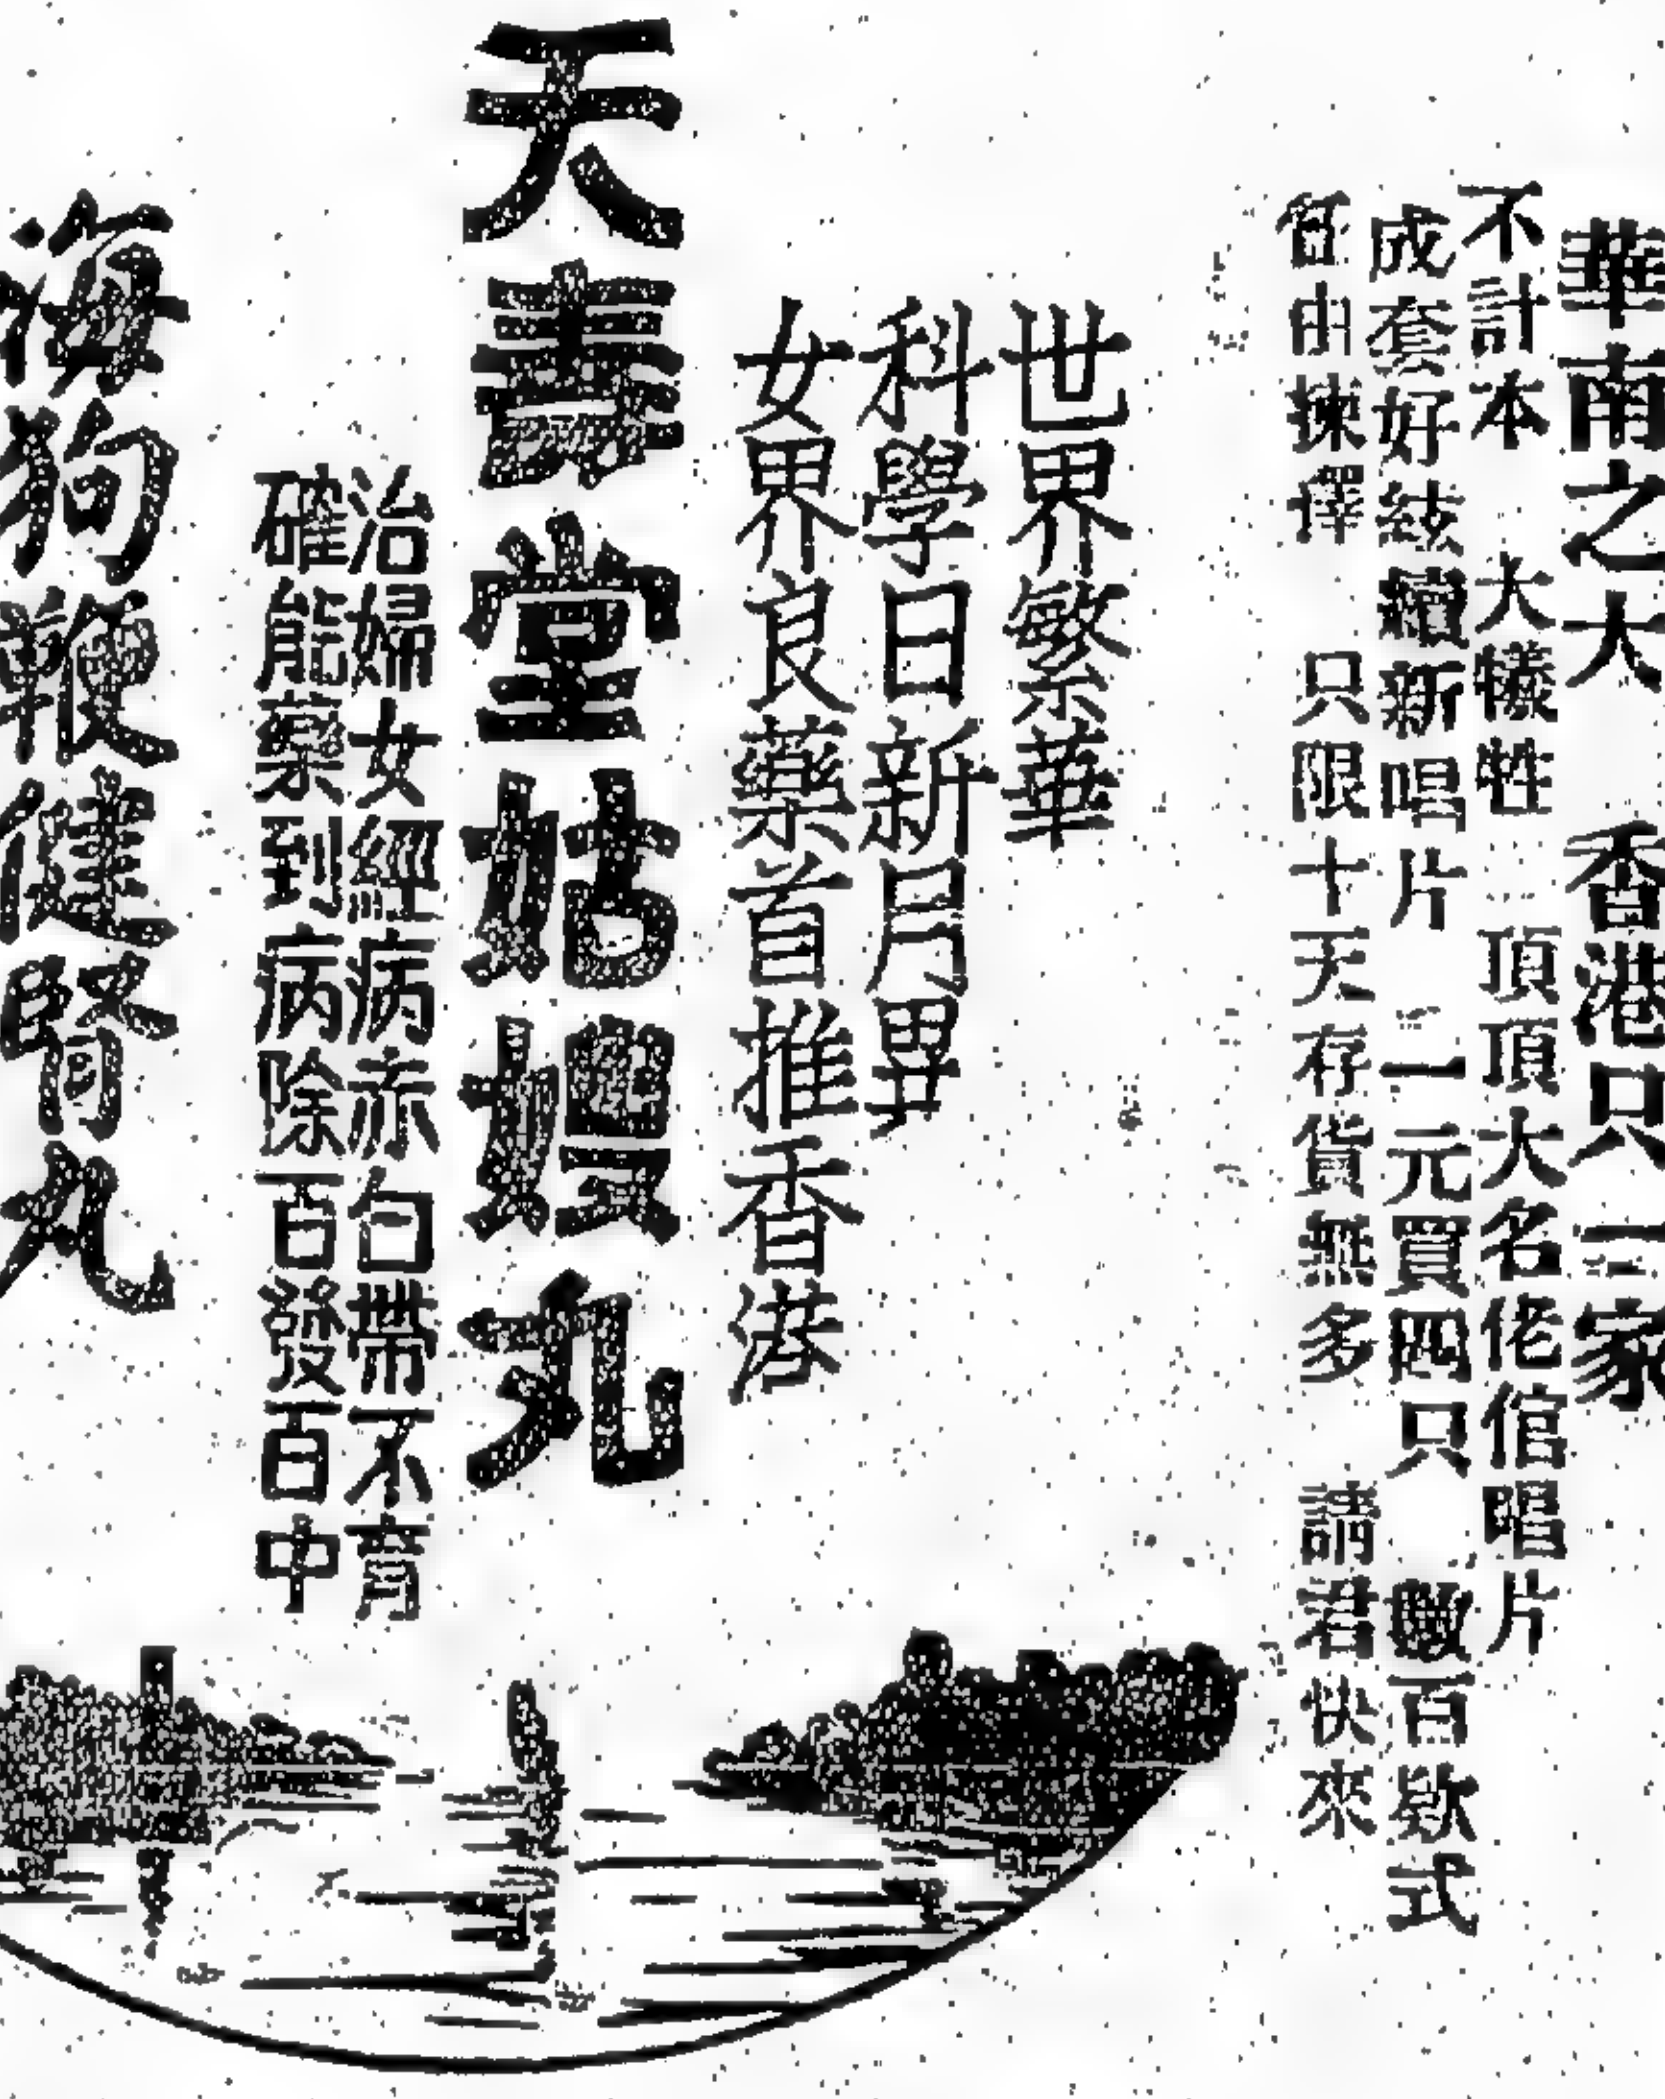 華南之大 香港只一家
不計本 大犧牲 頂頂大名佬倌唱片
成套好絃續新唱片 二元買四只 數百欵式
任由揀擇 只限十天存貨無多 請君快來
世界繁華
科學日新月異
女界良藥首推香港
天壽堂姑嫂丸
治婦女經病赤白帶不育
確能藥到病除百發百中
海狗鞭健腎丸